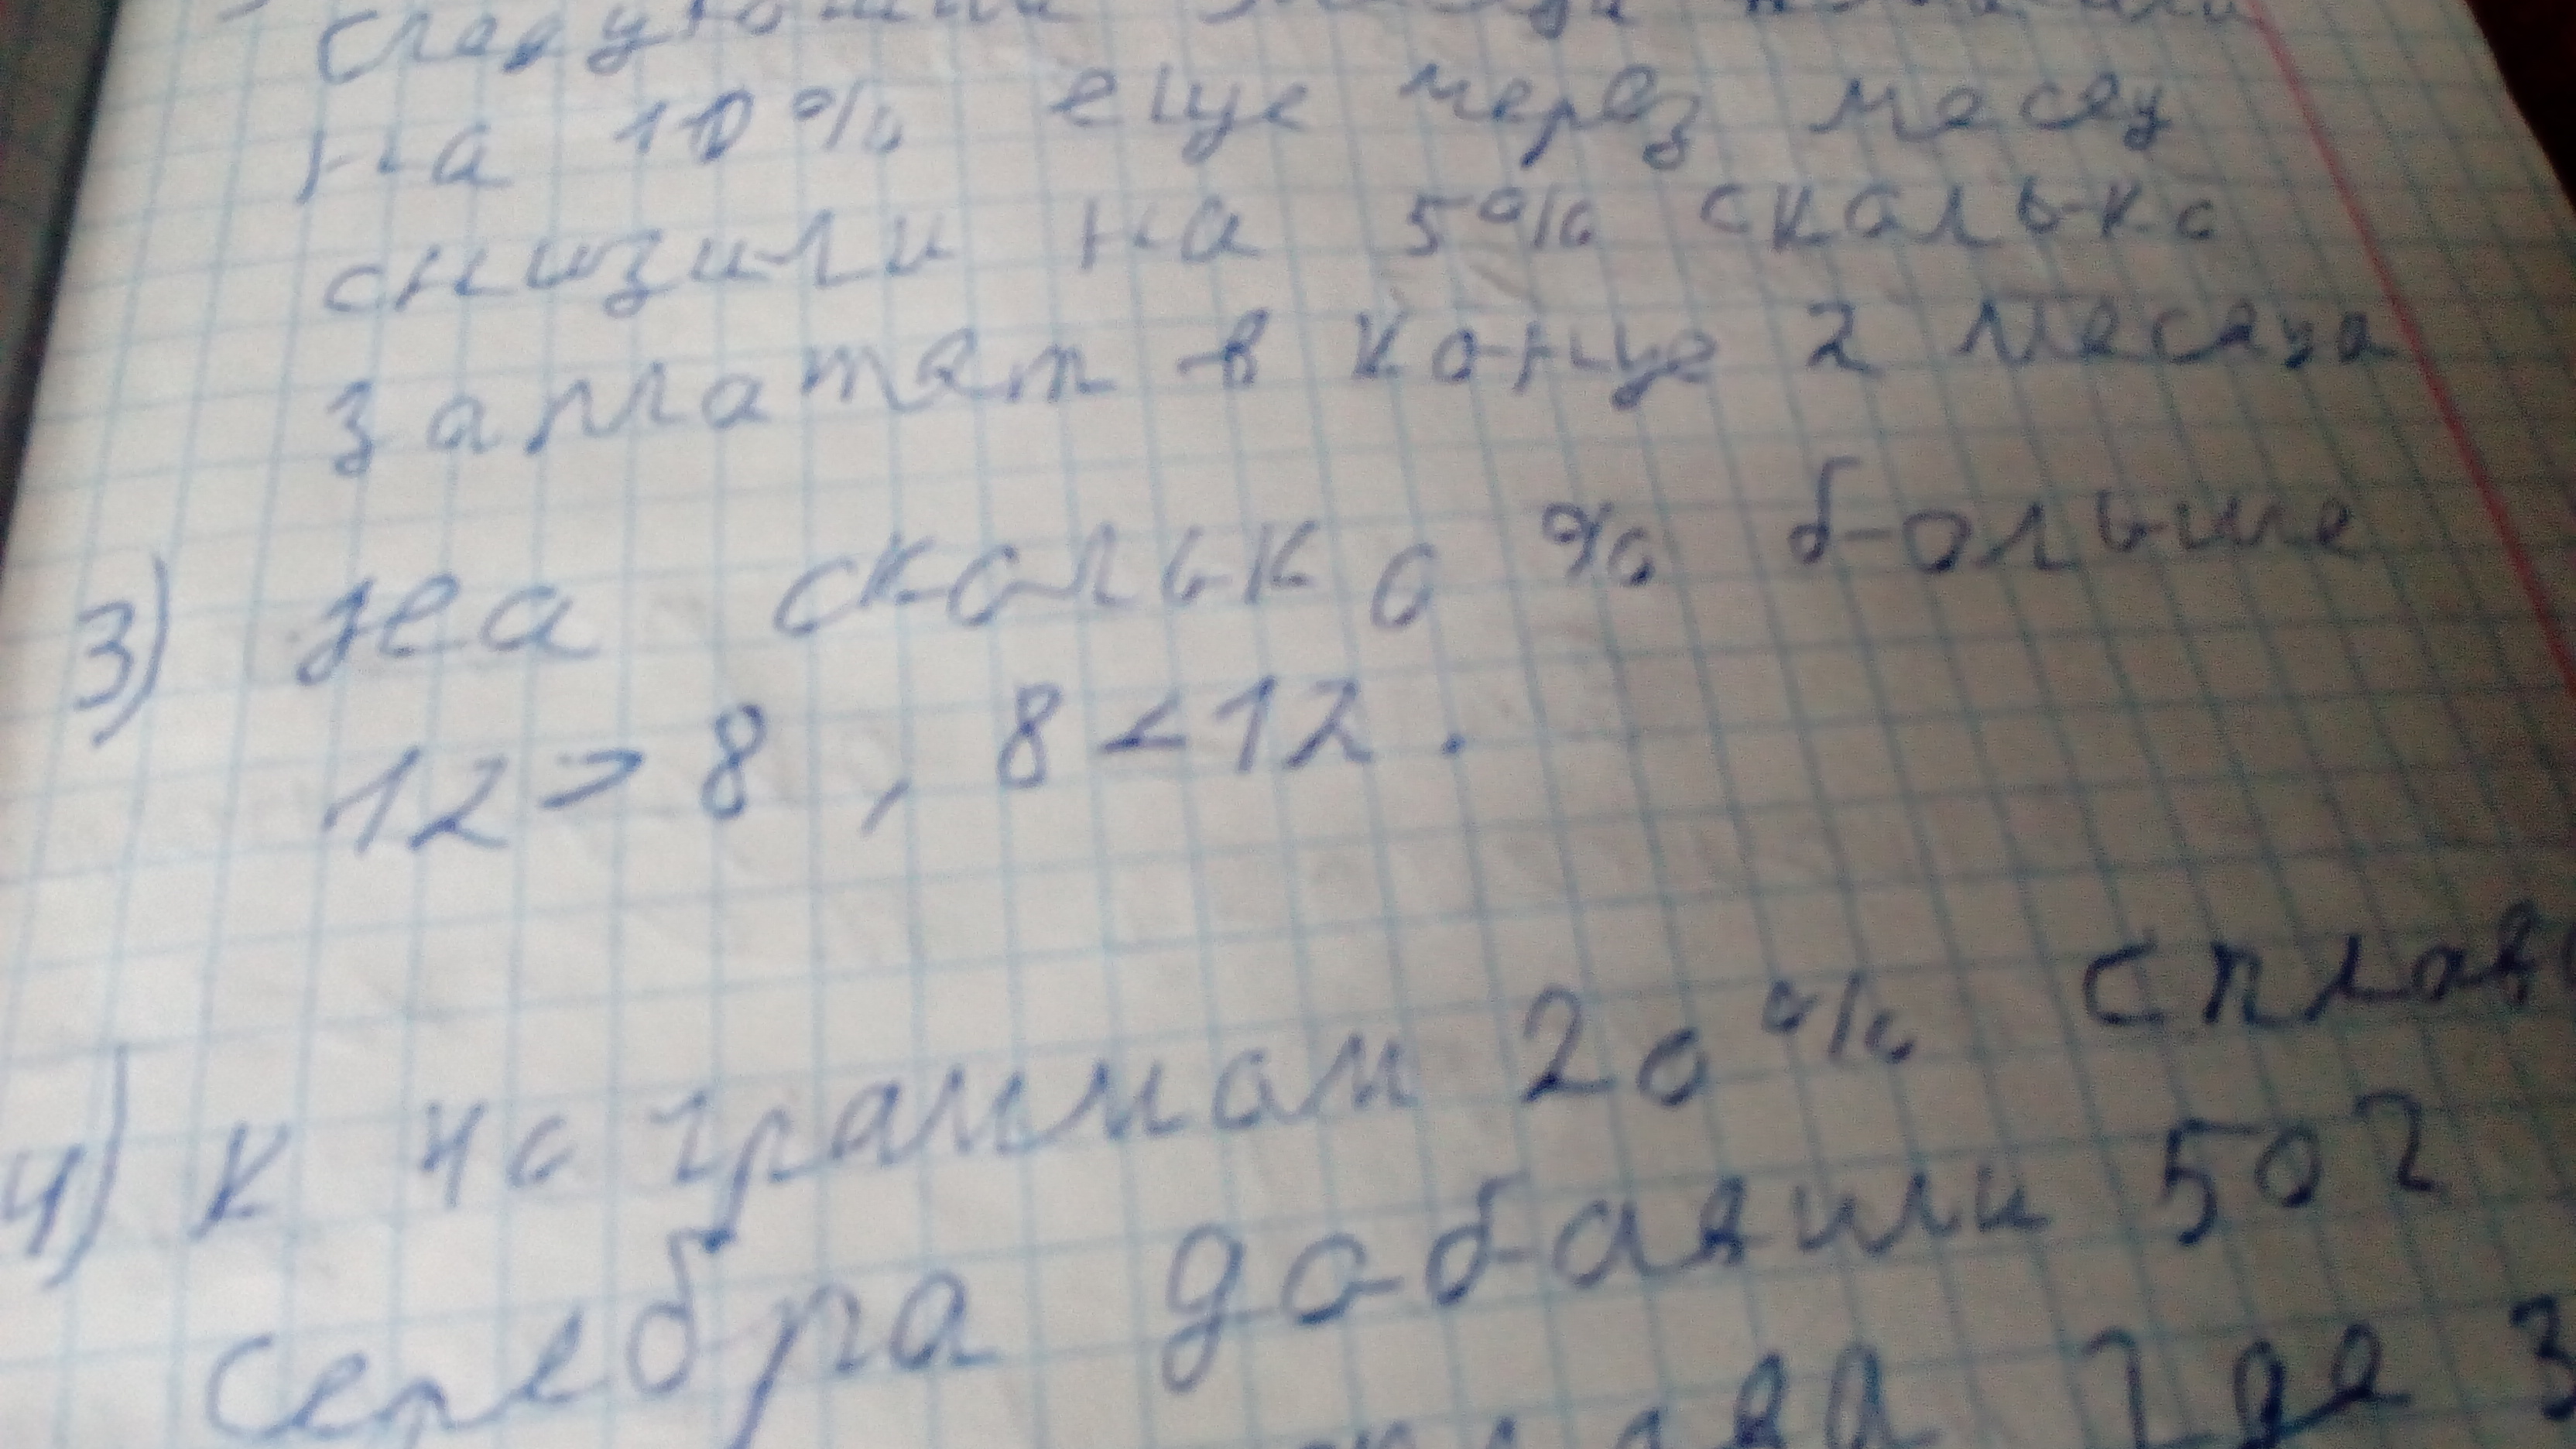 следующий
на 10% еще через месяц
снизили на 5% сколько
заплатят в конце 2 месяца
3) на сколько % больше
12 > 8 , 8 < 12 .
4) к 40 граммам 20% сплава
серебра добавили 50 г
сплава где 3